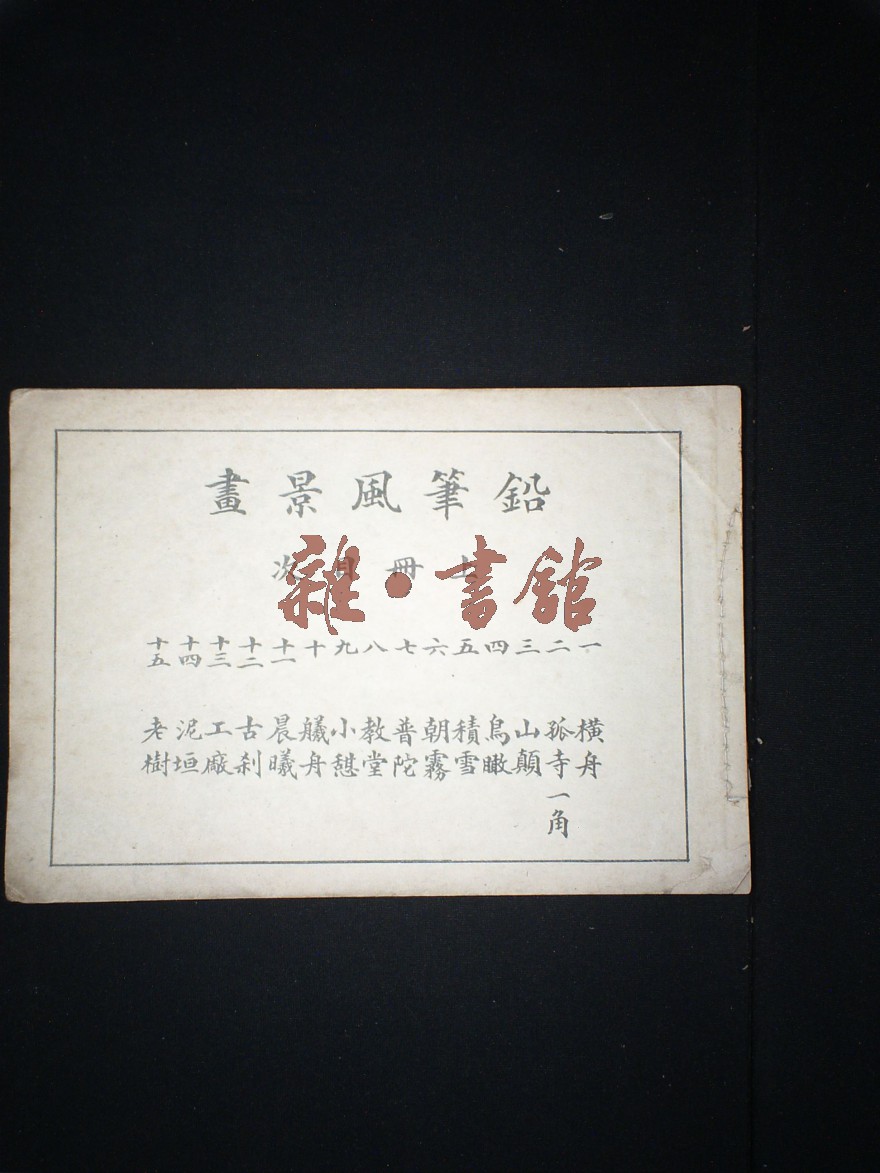 鉛筆風景畫
上冊目次
雜·書館
一 橫舟
二 孤寺一角
三 山顛
四 鳥瞰
五 積雪
六 朝霧
七 普陀
八 教堂
九 小憇
十 艤舟
十一 晨曦
十二 古刹
十三 工廠
十四 泥垣
十五 老樹